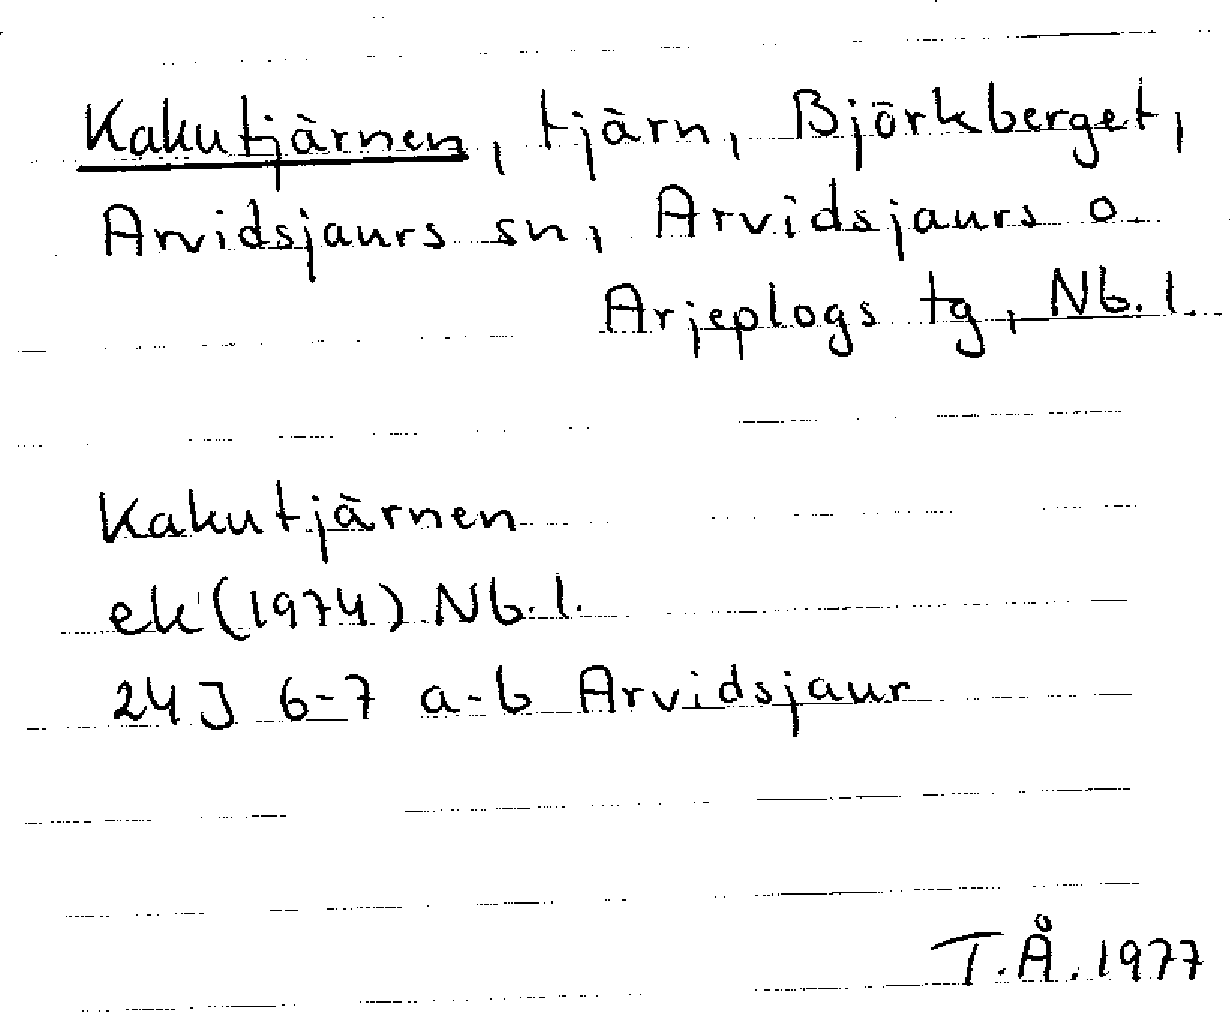 Kakutjärnen, tjärn, Björkberget,
Arvidsjaurs sn, Arvidsjaurs o.
Arjeplogs tg, Nb. l.
Kakutjärnen
ek (1974) Nb. l.
24J 6-7 a-b Arvidsjaur
T.Å. 1977